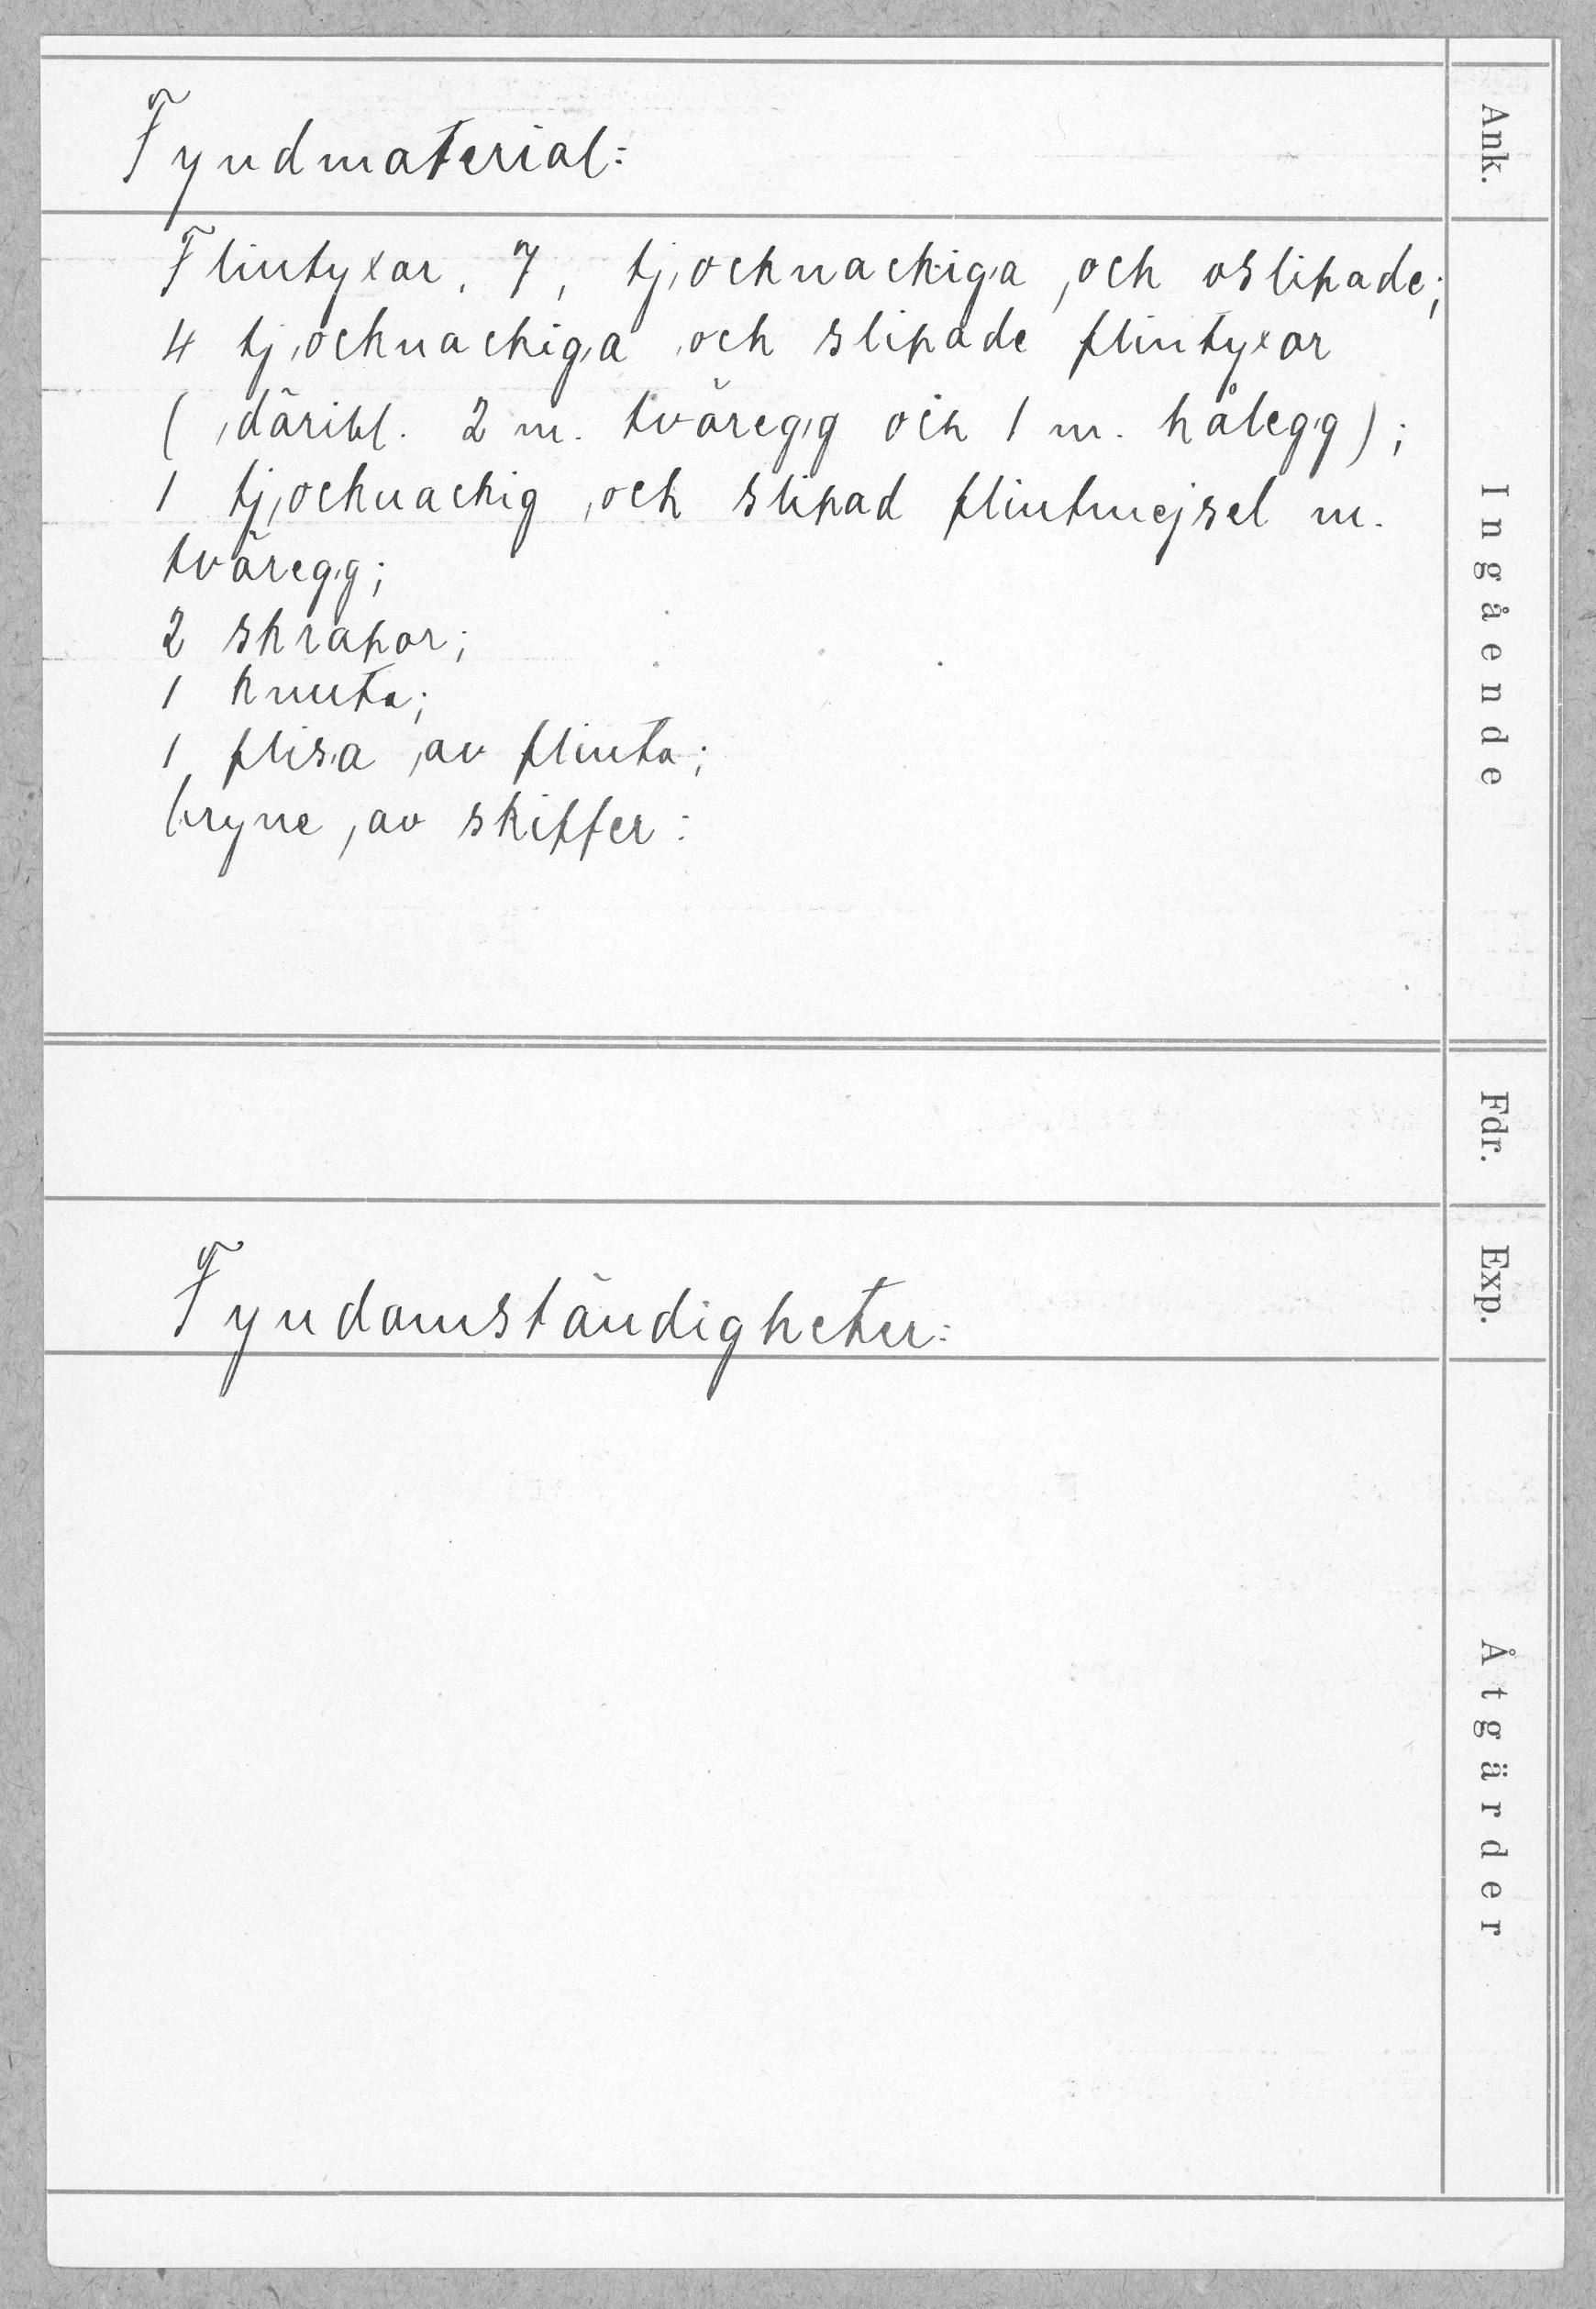 Fyndmaterial:
Ank.
Flintyxor, 7, tjocknackiga och oslipade;
4 tjocknackiga och slipade flintyxor
(däribl. 2 m. tväregg och 1 m. hålegg);
1 tjocknackig och slipad flintmejsel m.
tväregg;
2 skrapor;
1 knuta;
1 flisa av flinta;
bryne av skiffer:
Ingående
Fdr.
Fyndomständigheter:
Exp.
Åtgärder